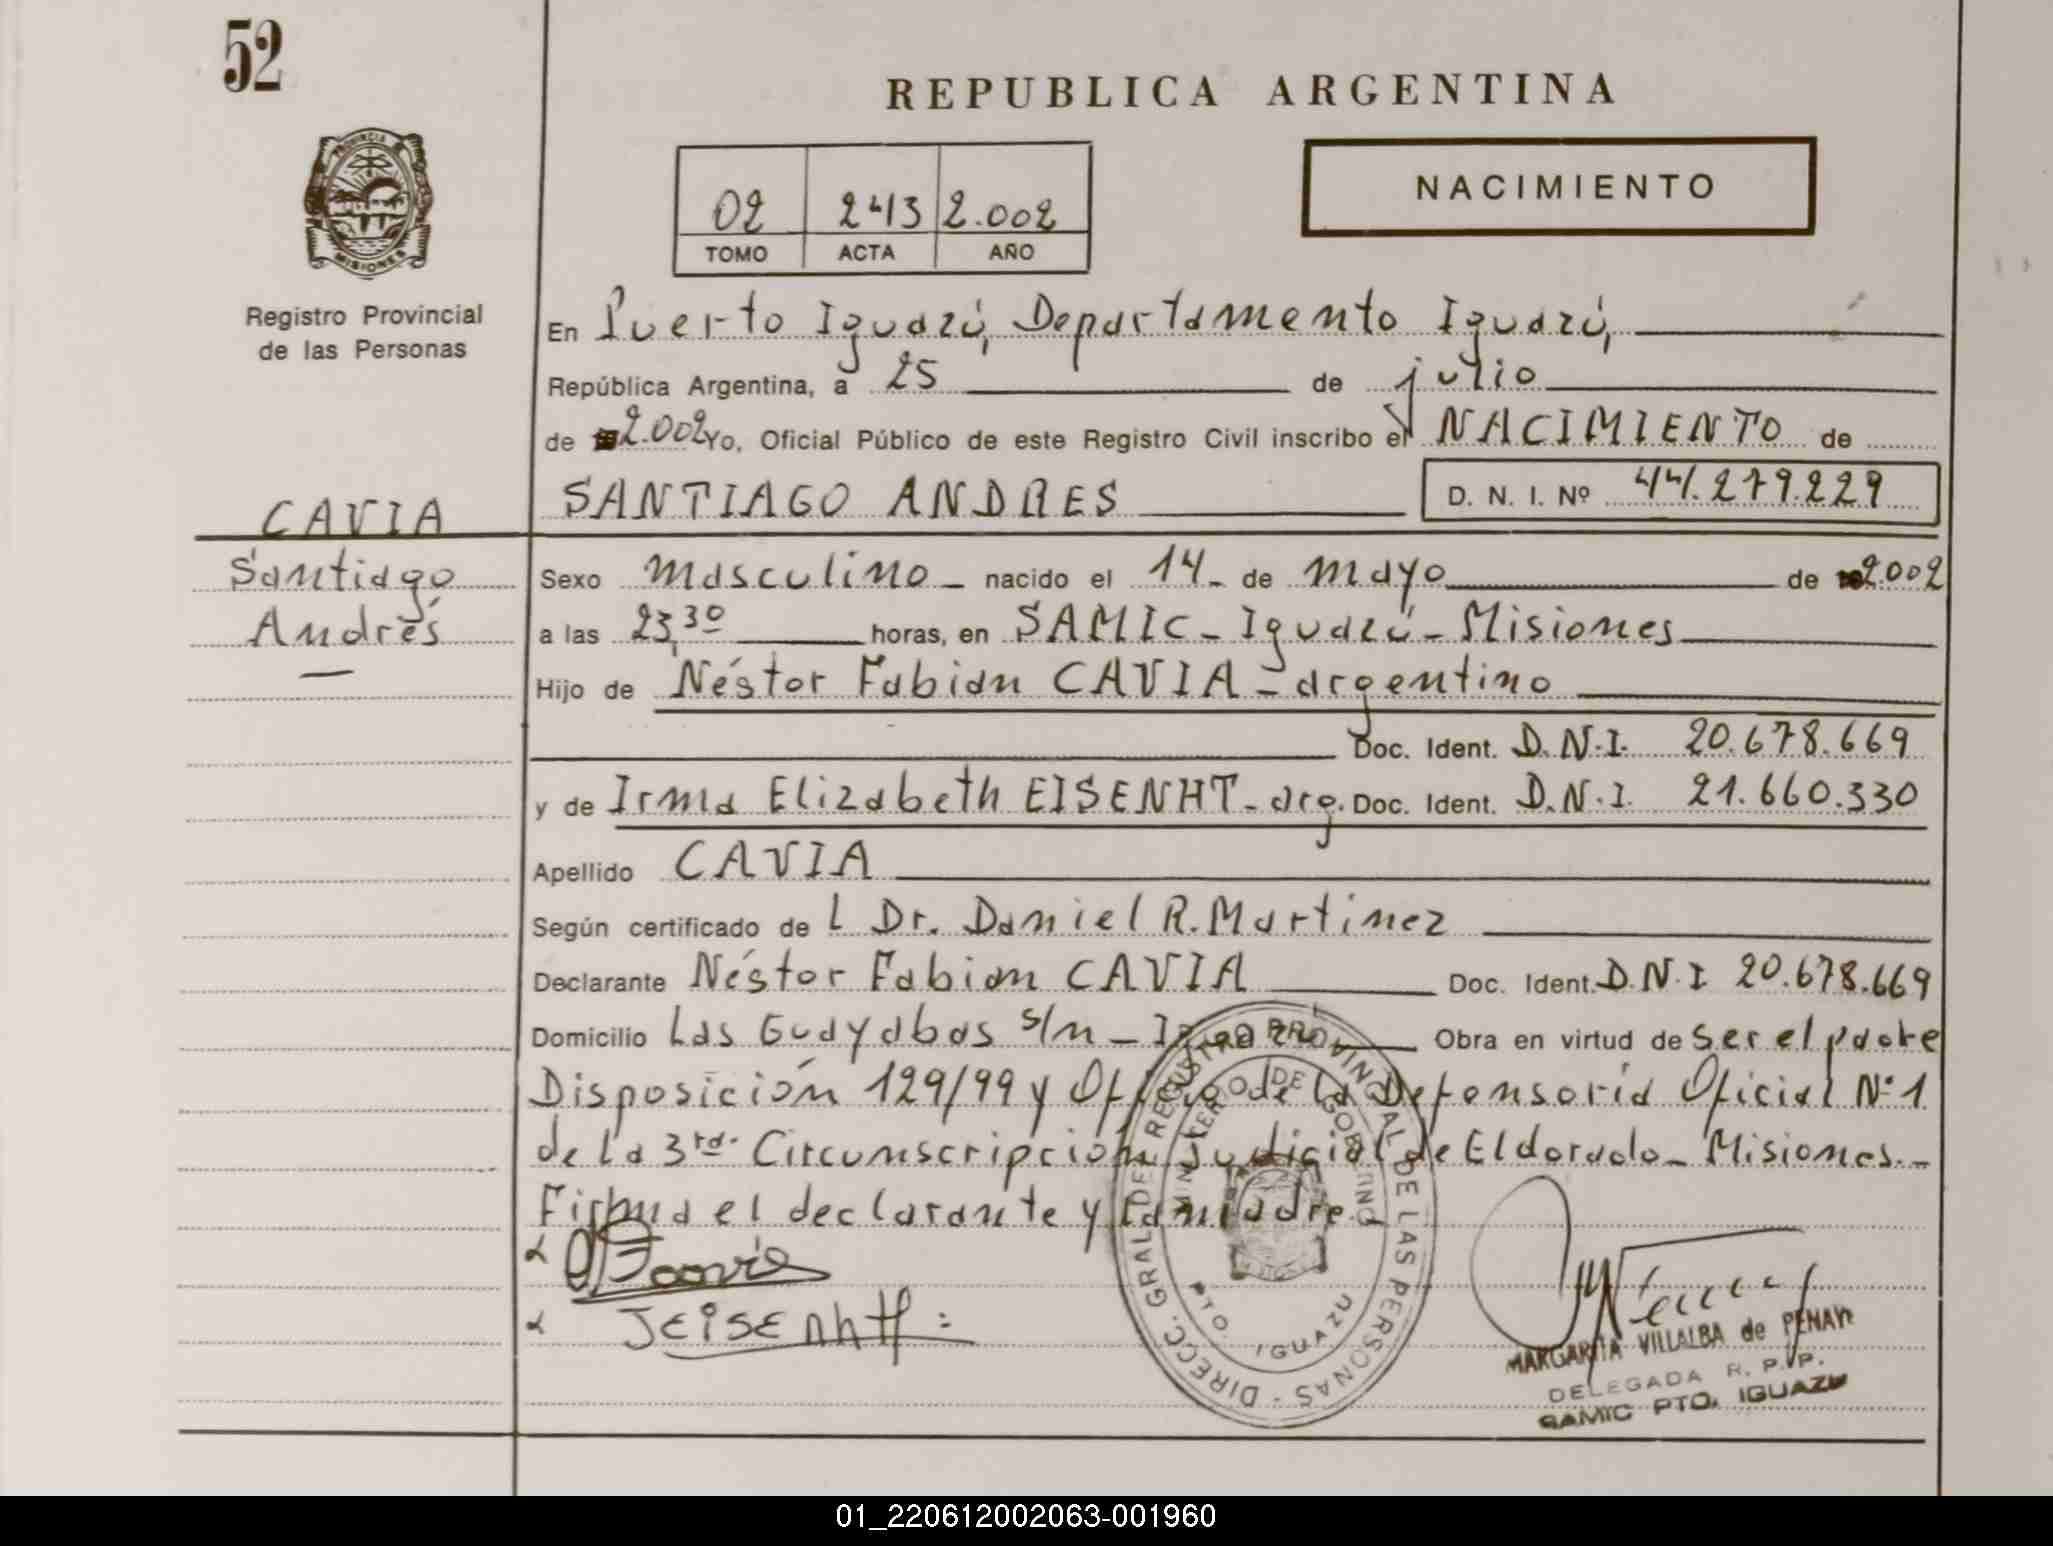 52
REPUBLICA ARGENTINA
PROVINCIA DE
MISIONES
02 243 2.002
TOMO ACTA AÑO
NACIMIENTO
Registro Provincial
de las Personas
En Puerto Iguazú, Departamento Iguazú,
República Argentina, a 25 de julio
de 2.002 Yo, Oficial Público de este Registro Civil inscribo el NACIMIENTO de
CAVIA
SANTIAGO ANDRES D. N. I. Nº 44.279.229
Santiago
Andrés
Sexo masculino - nacido el 14 - de mayo de 2.002
a las 23,30 horas, en SAMIC - Iguazú - Misiones
Hijo de Néstor Fabian CAVIA - argentino
Doc. Ident. D.N.I. 20.678.669
y de Irma Elizabeth EISENHT - arg. Doc. Ident. D.N.I. 21.660.330
Apellido CAVIA
Según certificado de L Dr. Daniel R. Martinez
Declarante Néstor Fabian CAVIA Doc. Ident. D.N.I 20.678.669
Domicilio Las Guayabas s/n - Iguazú Obra en virtud de ser el padre
Disposición 129/99 y Oficio de la Defensoría Oficial Nº 1
de la 3ra. Circumscripción Judicial de Eldorado - Misiones.-
Firma el declarante y la madre
JEisenht
DIRECC. GRAL. DEL REGISTRO PROVINCIAL DE LAS PERSONAS -
MINISTERIO DE GOBIERNO
PTO. IGUAZU
MARGARITA VILLALBA de PENAY
DELEGADA R. P. P.
SAMIC PTO. IGUAZU
01_220612002063-001960